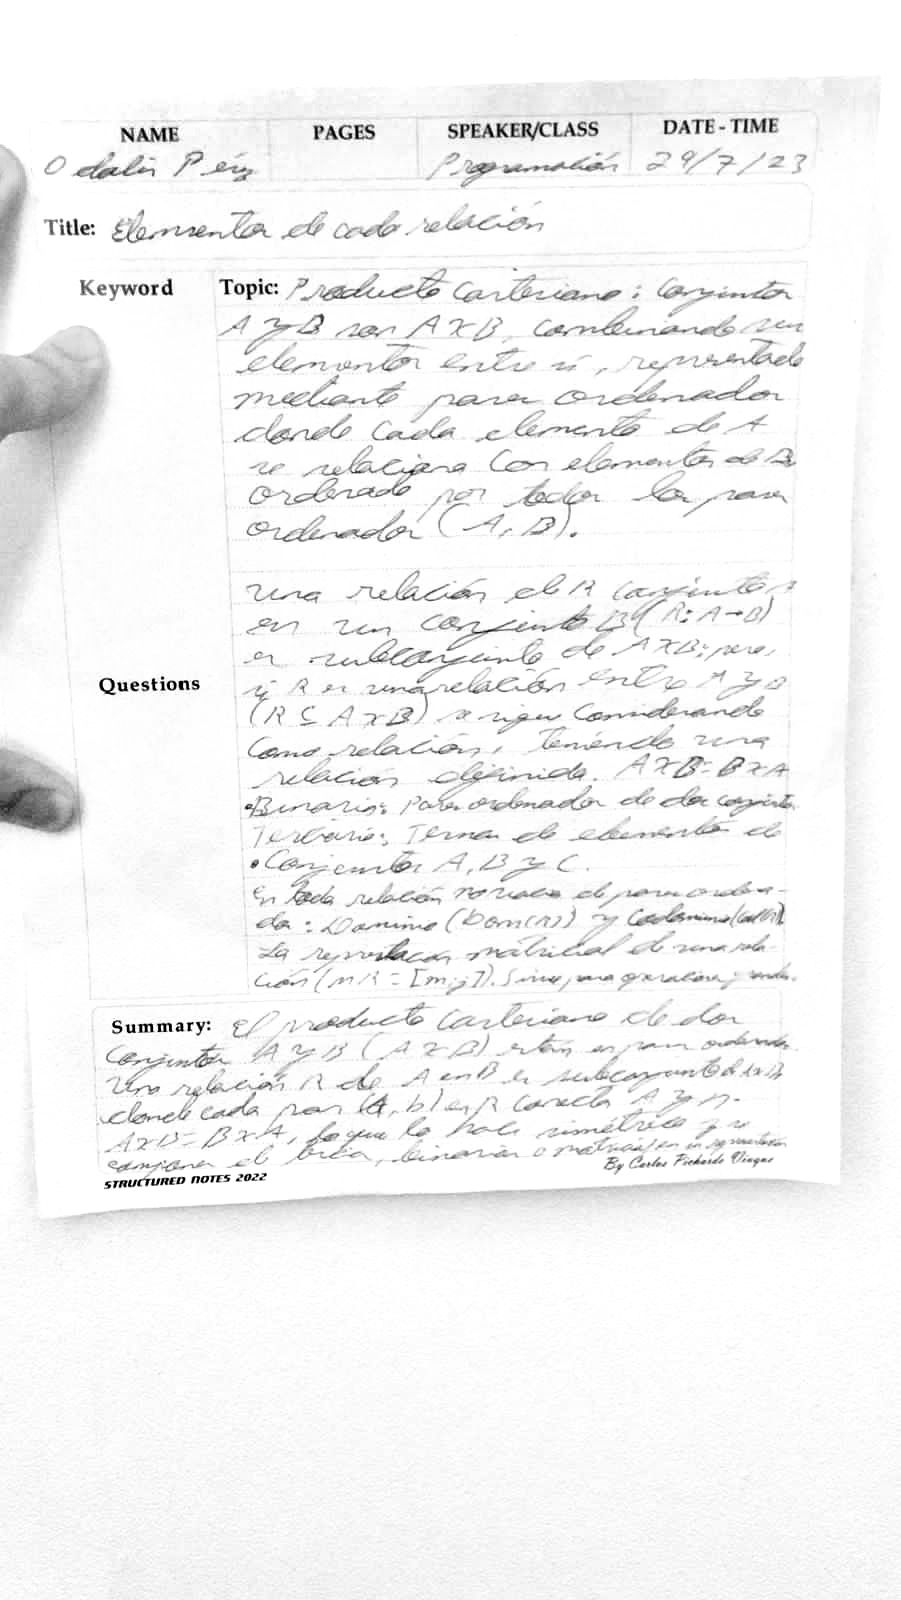 NAME PAGES SPEAKER/CLASS DATE - TIME
Odalis Programación 29/7/23
Title: Elementos de cada relación
Keyword Topic: Producto Cartesiano: Conjuntos
A y B son A x B, combinando sus
elementos entre si, representado
mediante pares ordenados
donde cada elemento de A
se relaciona con elementos de B
ordenado por todos los pares
ordenados (A, B).
una relación de R conjunto
en un conjunto B (R: A→B)
es subconjunto de A x B; pero,
Questions si R es una relación entre A y B
(R ⊆ A x B) se sigue Considerando
como relación, teniendo una
relación definida. A x B = B x A
•Binaria: Pares ordenados de dos conjuntos
Terciaria: Ternas de elementos de
• Conjuntos A, B y C.
en toda relación de pares ordena-
da: Dominio (Dom(R)) y Codominio
La matricial de una rela-
ción (MR = [mij]). Sirve para
Summary: El producto Cartesiano de dos
Conjuntos A y B (A x B) están en pares ordenados.
Una relación R de A en B es subconjunto de A x B
donde cada par (a, b) en R conecta A y
A x B = B x A, lo que lo hace simétrico y se
el binaria o matricial en
STRUCTURED NOTES 2022 By Carlos Pichardo Viuque